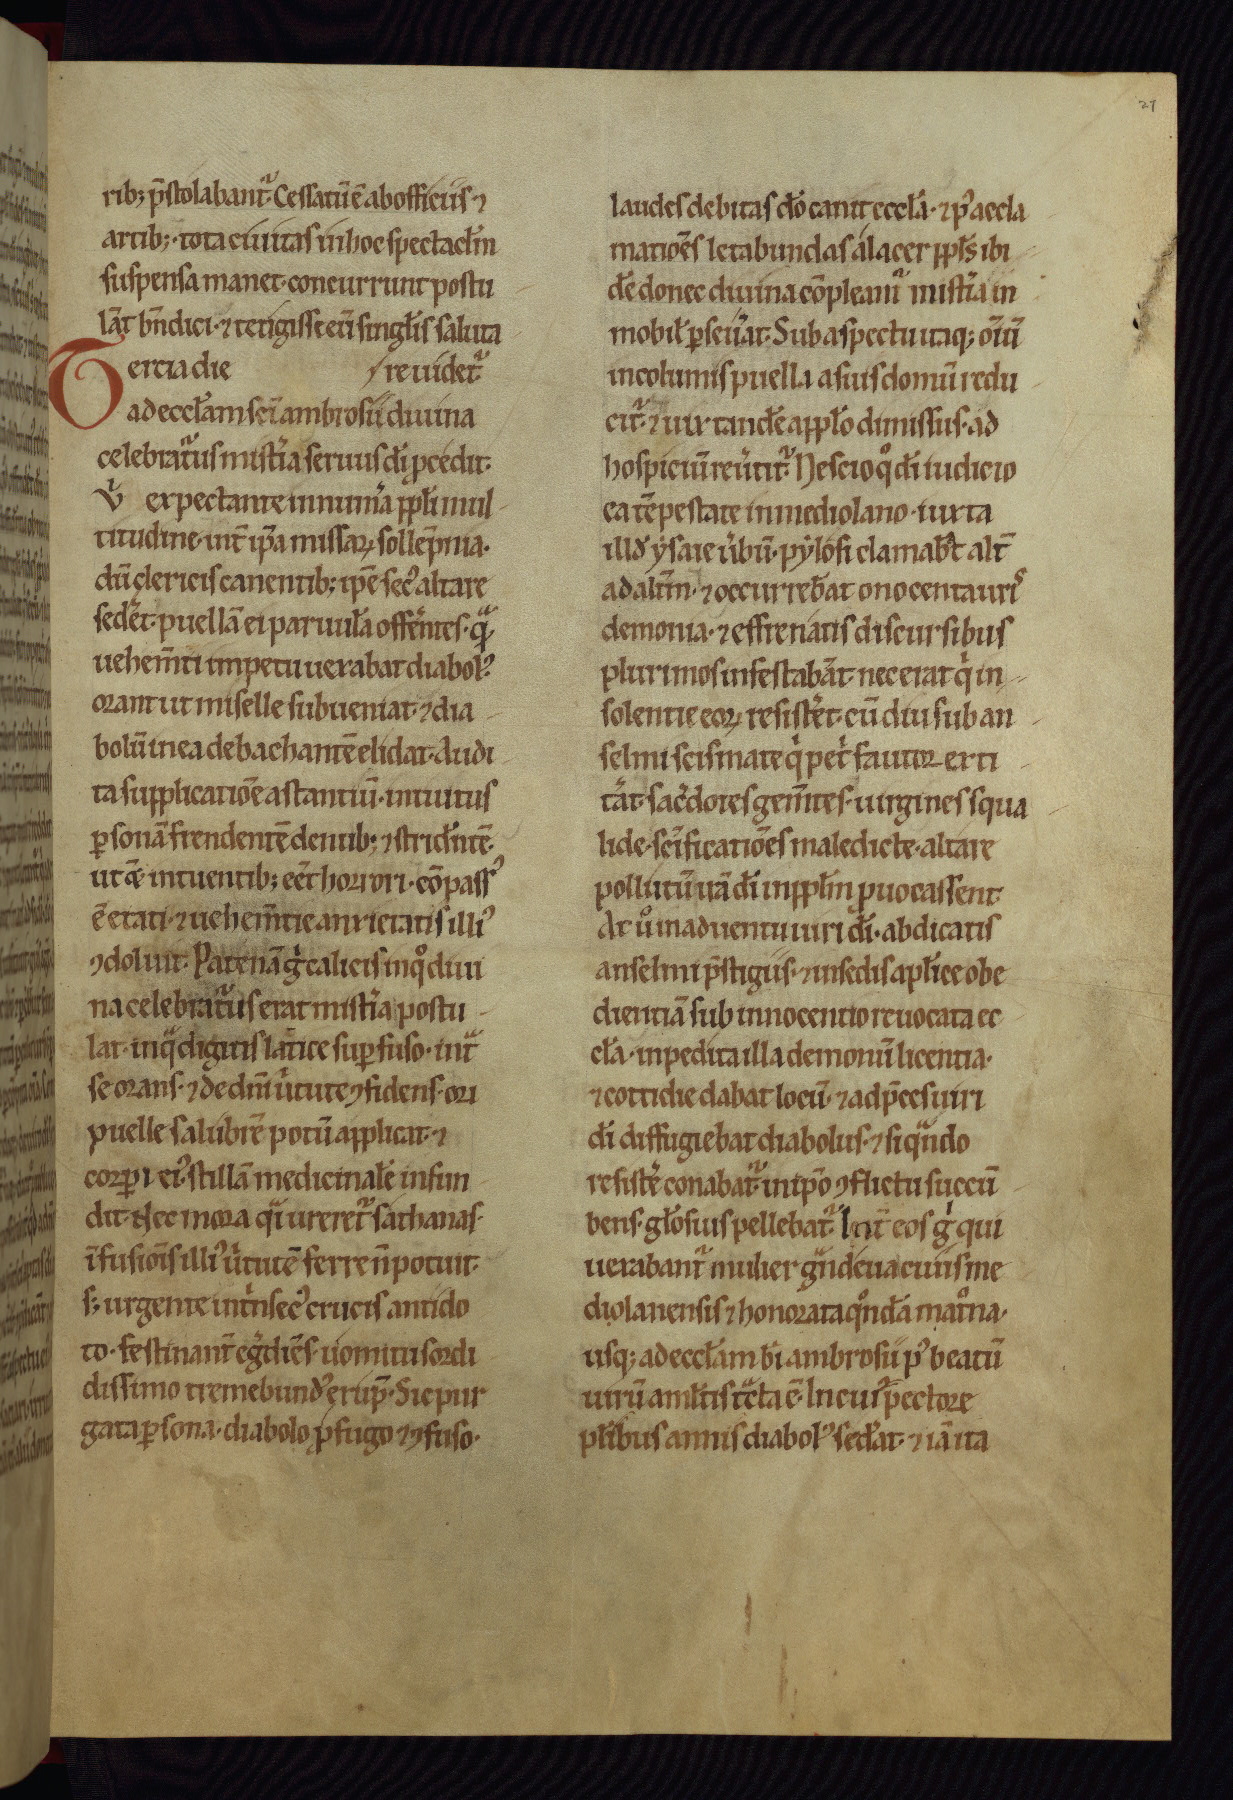 27
rib; p̄stolabant᷑. Cessatū ē ab officiis ⁊
artib;. tota ciuitas in hoc spectacl̄m
suspensa manet. concurrunt postu
lāt bn̄dici. ⁊ tetigisse eū singl̄is saluta
Tercia die / re uidet᷑
ad eccl̄am sc̄i ambrosii diuina
celebrat᷑us mist̄ia seruus dī p̄cedit.
V̇ expectante innum̄a ppl̄i mul
titudine. int̄ ip̄a missaꝝ sollēpnia.
dū clericis canentib; ip̄e secꝰ altare
sedēt. puellā ei paruul̄a offēntes. q̄
uehem̄ti impetu uexabat diabolꝰ
orant ut miselle subueniat. ⁊ dia
bolū in ea debachantē elidat. Audi
ta supplicatiōe astantiū. intuitus
ꝑsonā frendentē dentib; ⁊ strid̄ntē.
ut &̄ intuentib; eēt horrori. cōpassꝰ
ē etati. ⁊ uehem̄tie anxietatis illiꝰ
ꝯdoluit. Patenā g̊ calicis in qͦ diui
na celebrat᷑us erat mist̄ia postu
lat. inqͣ digitis latice suꝑfuso. int̄
se orans. ⁊ de dn̄i u̇tute ꝯfidens. ori
puelle salubrē potū applicat. ⁊
corꝑi eiꝰ stillā medicinalē infun
dit. Nec mora qͣi ureret᷑ sathanas.
īfusiōis illiꝰ u̇tutē ferre n̄ potuit.
s; urgente int̄nsecꝰ crucis antido
to. festinant̄ eg̊diēs. uomitu sordi
dissimo tremebundꝰ erup̄. Sic pur
gata ꝑsona. diabolo ꝓfugo ⁊ ꝯfuso.
laudes debitas dō canit eccl̄a. ⁊ pꝰ accla
matiōes letabundas alacer ppl̄s ibi
dē donec diuina cōpleant᷑ mist̄ia in
mobil̄ ꝑseu̇at. Sub aspectu itaq; oīū
incolumis puella a suis domū redu
cit᷑. ⁊ uix tandē a ppl̄o dimissus. ad
hospiciū reu̇tit᷑. Nescio qͦ dī iudicio
ea tēpestate in mediolano. iuxta
illd̄ ysaie u̇bū. pylosi clamabāt alt̄
ad alt̄m. ⁊ occurrebāt onocentauriꝰ
demonia. ⁊ effrenatis discursibus
plurimos infestabāt. nec erat qⁱ in
solentie eoꝝ resistēt. cū diu sub an
selmi scismate qⁱ pet̄ fautor exti
tāt. sac̄dotes gem̄tes. uirgines squa
lide. sc̄ificatiōes maledicte. altare
pollutū irā dī in ppl̄m ꝓuocassent.
At u̇ͦ in aduentu uiri dī. abdicatis
anselmi p̄stigiis. ⁊ in sedis apl̄ice obe
dientiā sub innocentio reuocata ec
cl̄a. inpedita illa demonū licentia.
⁊ cottidie dabat locū. ⁊ ad p̄ces uiri
dī diffugiebat diabolus. ⁊ si qͣndo
resistē conabat᷑. in ip̄o ꝯflictu succū
bens. gl̄osius pellebat᷑. Int̄ eos g̊ qui
uexabant᷑ mulier gͣndeua ciuis me
diolanensis ⁊ honorata qͦndā matͦna.
usq; ad eccl̄am bī ambrosii pꝰ beatū
uirū a ml̄tis tͣcta ē. In cuiꝰ pectore
pl̄ibus annis diabolꝰ sedāt. ⁊ iā ita